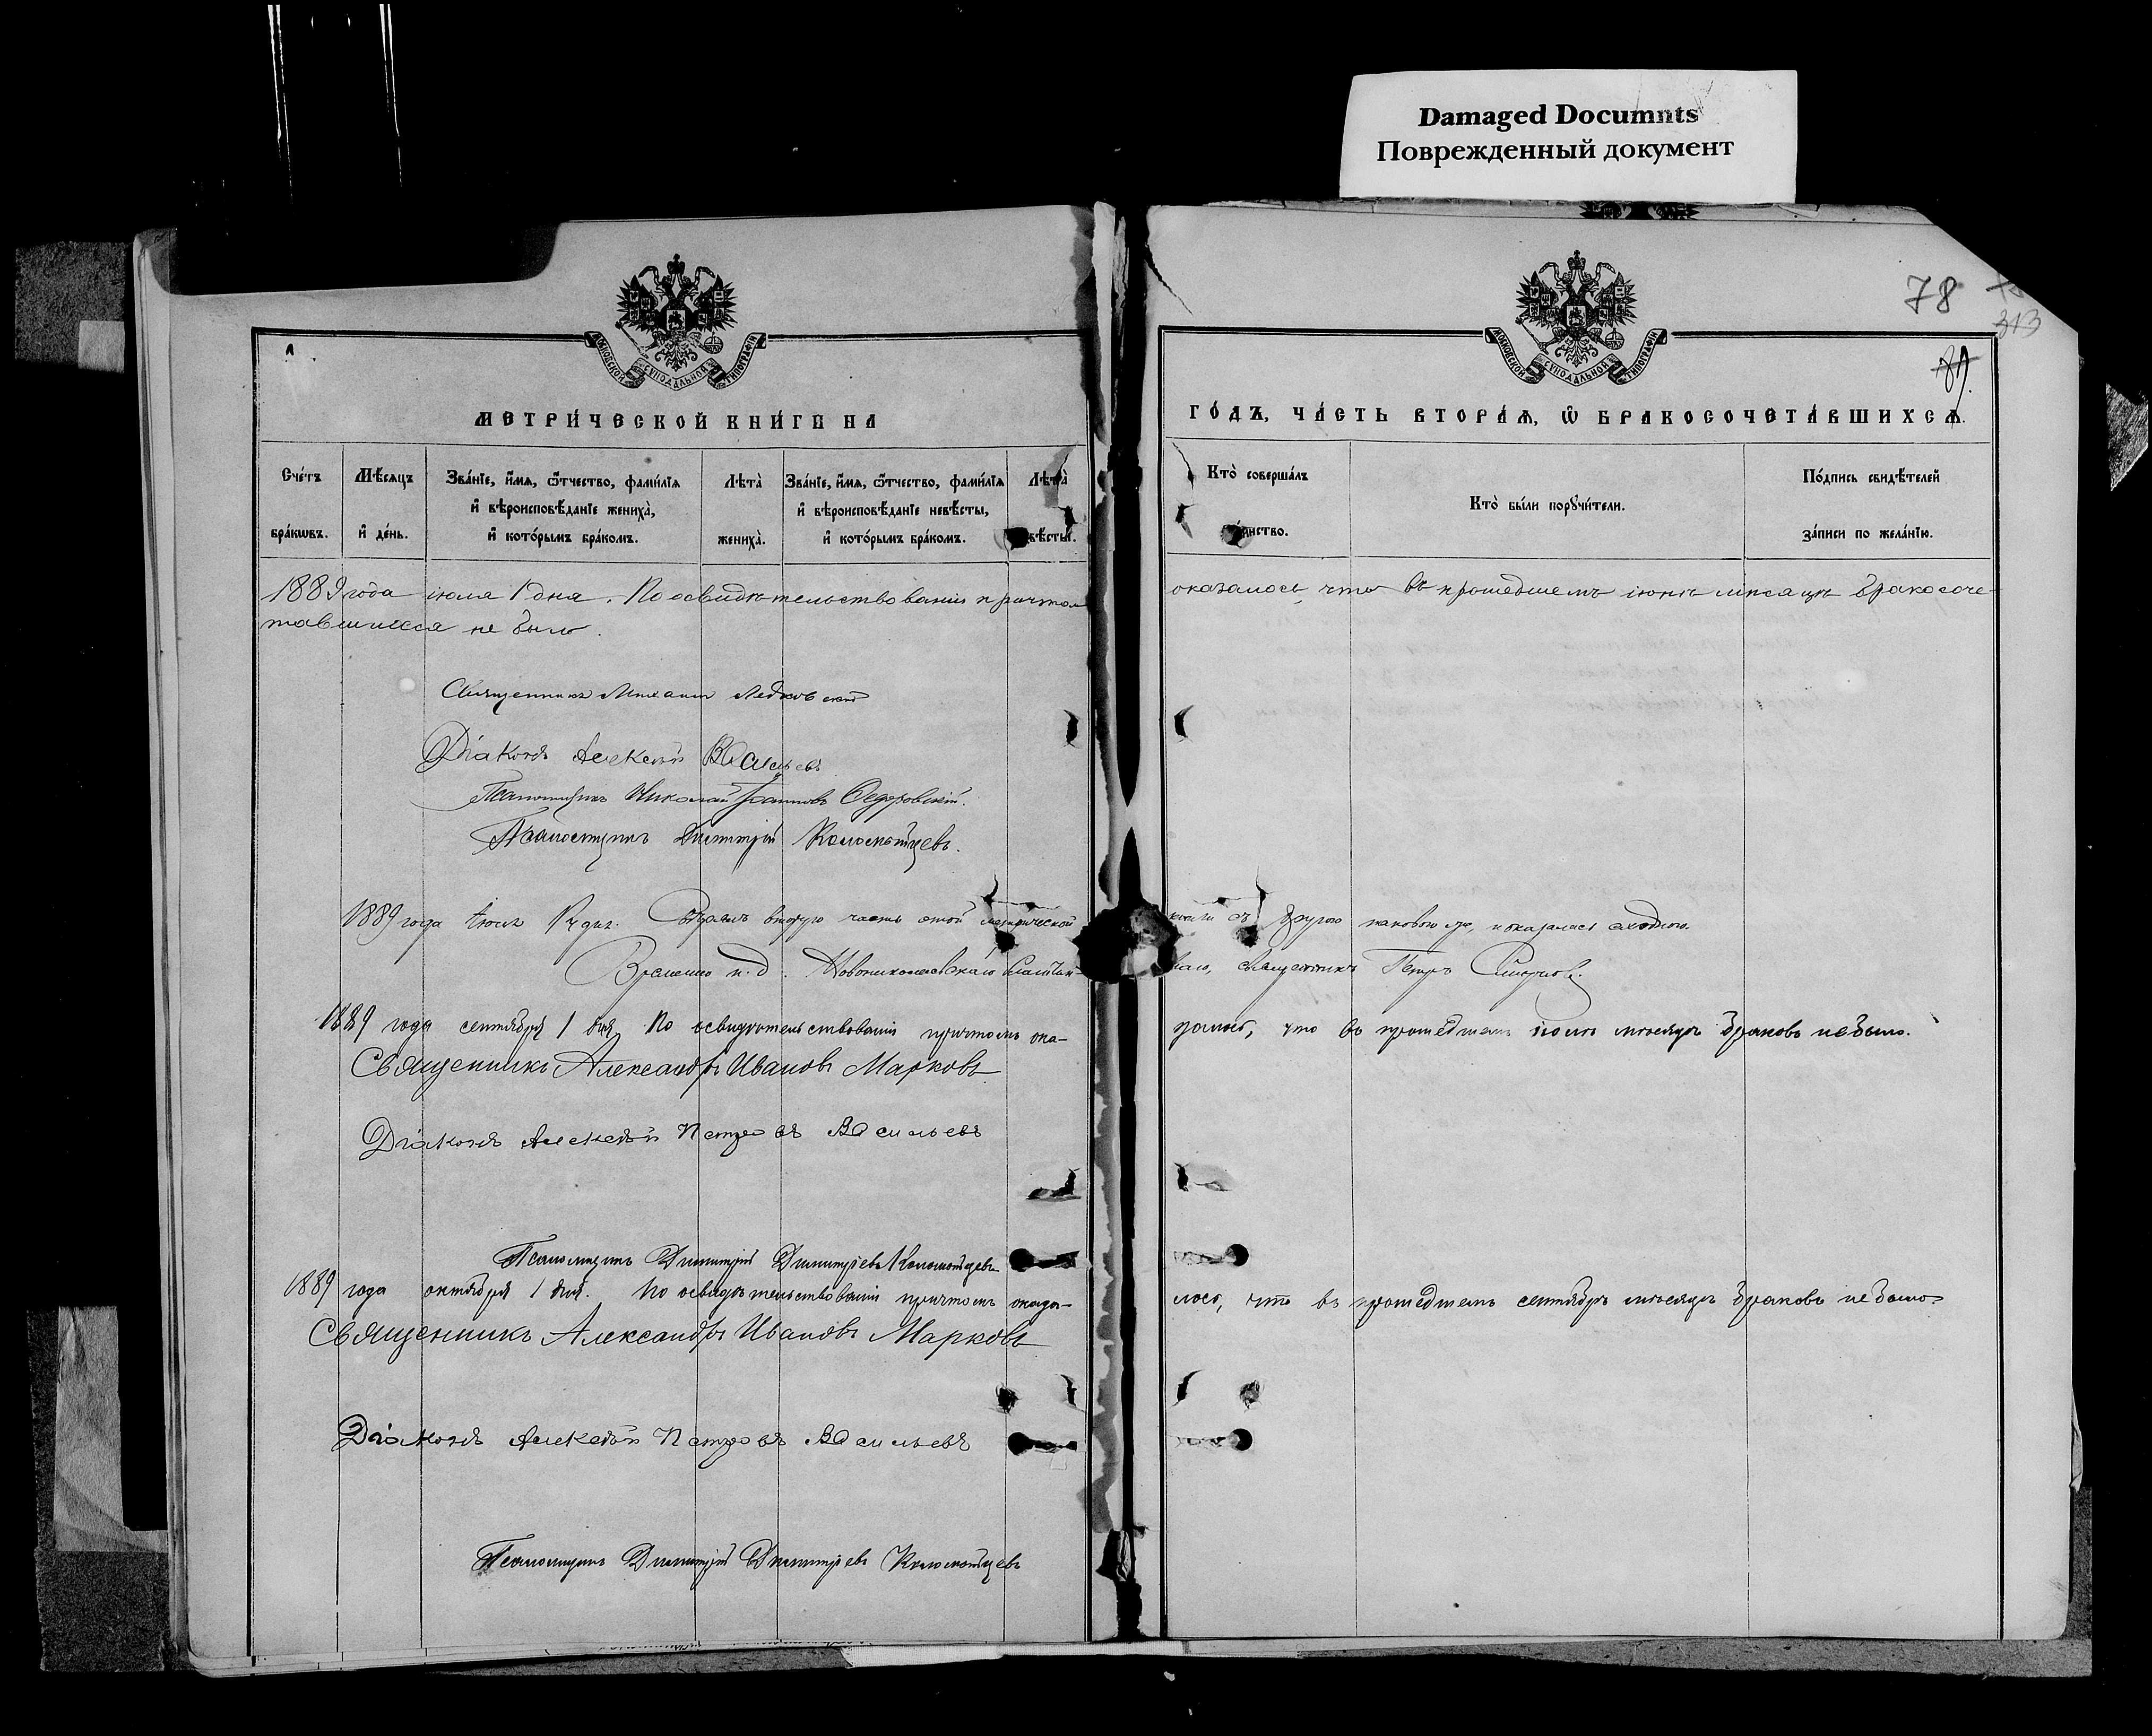 Damaged Documnts
Поврежденный документ
МОСКОВСКОЙ СѴНОДАЛЬНОЙ ТИПОГРАФІИ
МОСКОВСКОЙ СѴНОДАЛЬНОЙ ТИПОГРАФІИ
78
313
МЕТРИ́ЧЕСКОЙ КНИ́ГИ НА
ГО́ДЪ, ЧА́СТЬ ВТОРА́Ѧ, Ѡ҆ БРАКОСОЧЕТА́ВШИХСѦ.
Сче́тъ бра́кѡвъ.
Мѣ́сяцъ и҆ де́нь.
Зва́нїе, и҆́мѧ, ѻ҆́тчество, фами́лїѧ и҆ вѣроисповѣ́данїе жениха̀, и҆ кото́рымъ бра́комъ.
Лѣта̀ жениха̀.
Зва́нїе, и҆́мѧ, ѻ҆́тчество, фами́лїѧ и҆ вѣроисповѣ́данїе невѣ́сты, и҆ кото́рымъ бра́комъ.
Лѣта̀ вѣ́сты.
Кто̀ соверша́лъ та́инство.
Кто̀ бы́ли порꙋчи́тели.
По́дпись свидѣ́телей за́писи по жела́нїю.
1889 года іюля 1 дня. По освидѣтельствованіи причтом оказалось, что въ прошедшемъ іюнѣ мѣсяцѣ бракосоче-
тавшихся не было.
Священникъ Михаил
Діаконъ Алексѣй Васильевъ
Псаломщикъ Николай Іоанновъ Федоровскій.
Псаломщикъ Димитрій Коломѣйцевъ.
1889 года Іюля дня. вторую часть этой метрической книги съ другою таковою же, и оказалась сходною.
Временно и. д. Новониколаевскаго священникъ Петръ Смирновъ.
1889 года сентября 1 дня По освидѣтельствованіи причтомъ ока- залось, что въ прошедшемъ мѣсяцѣ браковъ не было.
Священникъ Александръ Ивановъ Марковъ
Діаконъ Алексѣй Петровъ Васильевъ
Псаломщикъ Димитрій Димитріевъ Коломѣйцевъ
1889 года октября 1 дня. По освидѣтельствованіи причтомъ оказа- лось, что въ прошедшемъ сентябрѣ мѣсяцѣ браковъ не было.
Священникъ Александръ Ивановъ Марковъ
Діаконъ Алексѣй Петровъ Васильевъ
Псаломщикъ Димитрій Димитріевъ Коломѣйцевъ